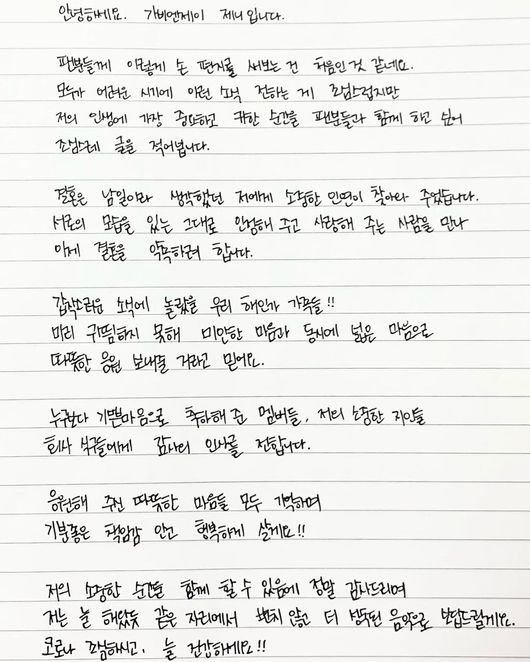 안녕하세요. 가비엔제이 제니입니다.
팬분들께 이렇게 손 편지를 써보는 건 처음인것 같네요.
모두가 어려운 시기에 이런 소식 전하는 게 조심스럽지만
저의 인생에 가장 중요하고 귀한 순간을 팬분들과 함께 하고 싶어
조심스레 글을 적어봅니다.
결혼은 남일이라 생각했던 저에게 소중한 인연이 찾아와 주었습니다.
서로의 모습을 있는 그대로 인정해 주고 사랑해 주는 사람을 만나
이제 결혼을 약속하려 합니다.
갑작스러운 소식에 놀랐을 우리 해인가 가족들!!
미리 귀띔하지 못해 미안한 마음과 동시에 넓은 마음으로
따뜻한 응원 보내줄 거라고 믿어요.
누구보다 기쁜마음으로 축하해 준 멤버들, 저의 소중한 지인들
회사 식구들에게 감사의 인사를 전합니다.
응원해 주신 따뜻한 마음들 모두 기억하며
기분좋은 책임감 안고 행복하게 살게요!!
저의 소중한 순간을 함께 할 수 있음에 정말 감사드리며
저는 늘 해왔듯 같은 자리에서 변치 않는 더 성숙된 음악으로 보답드릴게요.
코로나 조심하시고, 늘 건강하세요!!